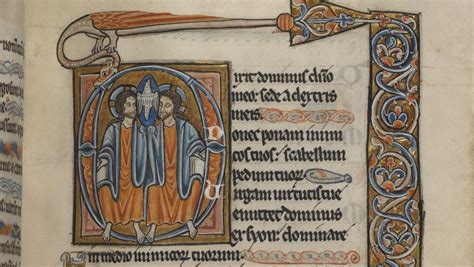 Dixit dominus dño
meo: sede a dextris
meis
Donec ponam inimi
cos tuos: scabellum
pedum tuorum
Virgam virtutis tue
emittet dominus
ex syon: dominare
in medio inimicorum tuorum